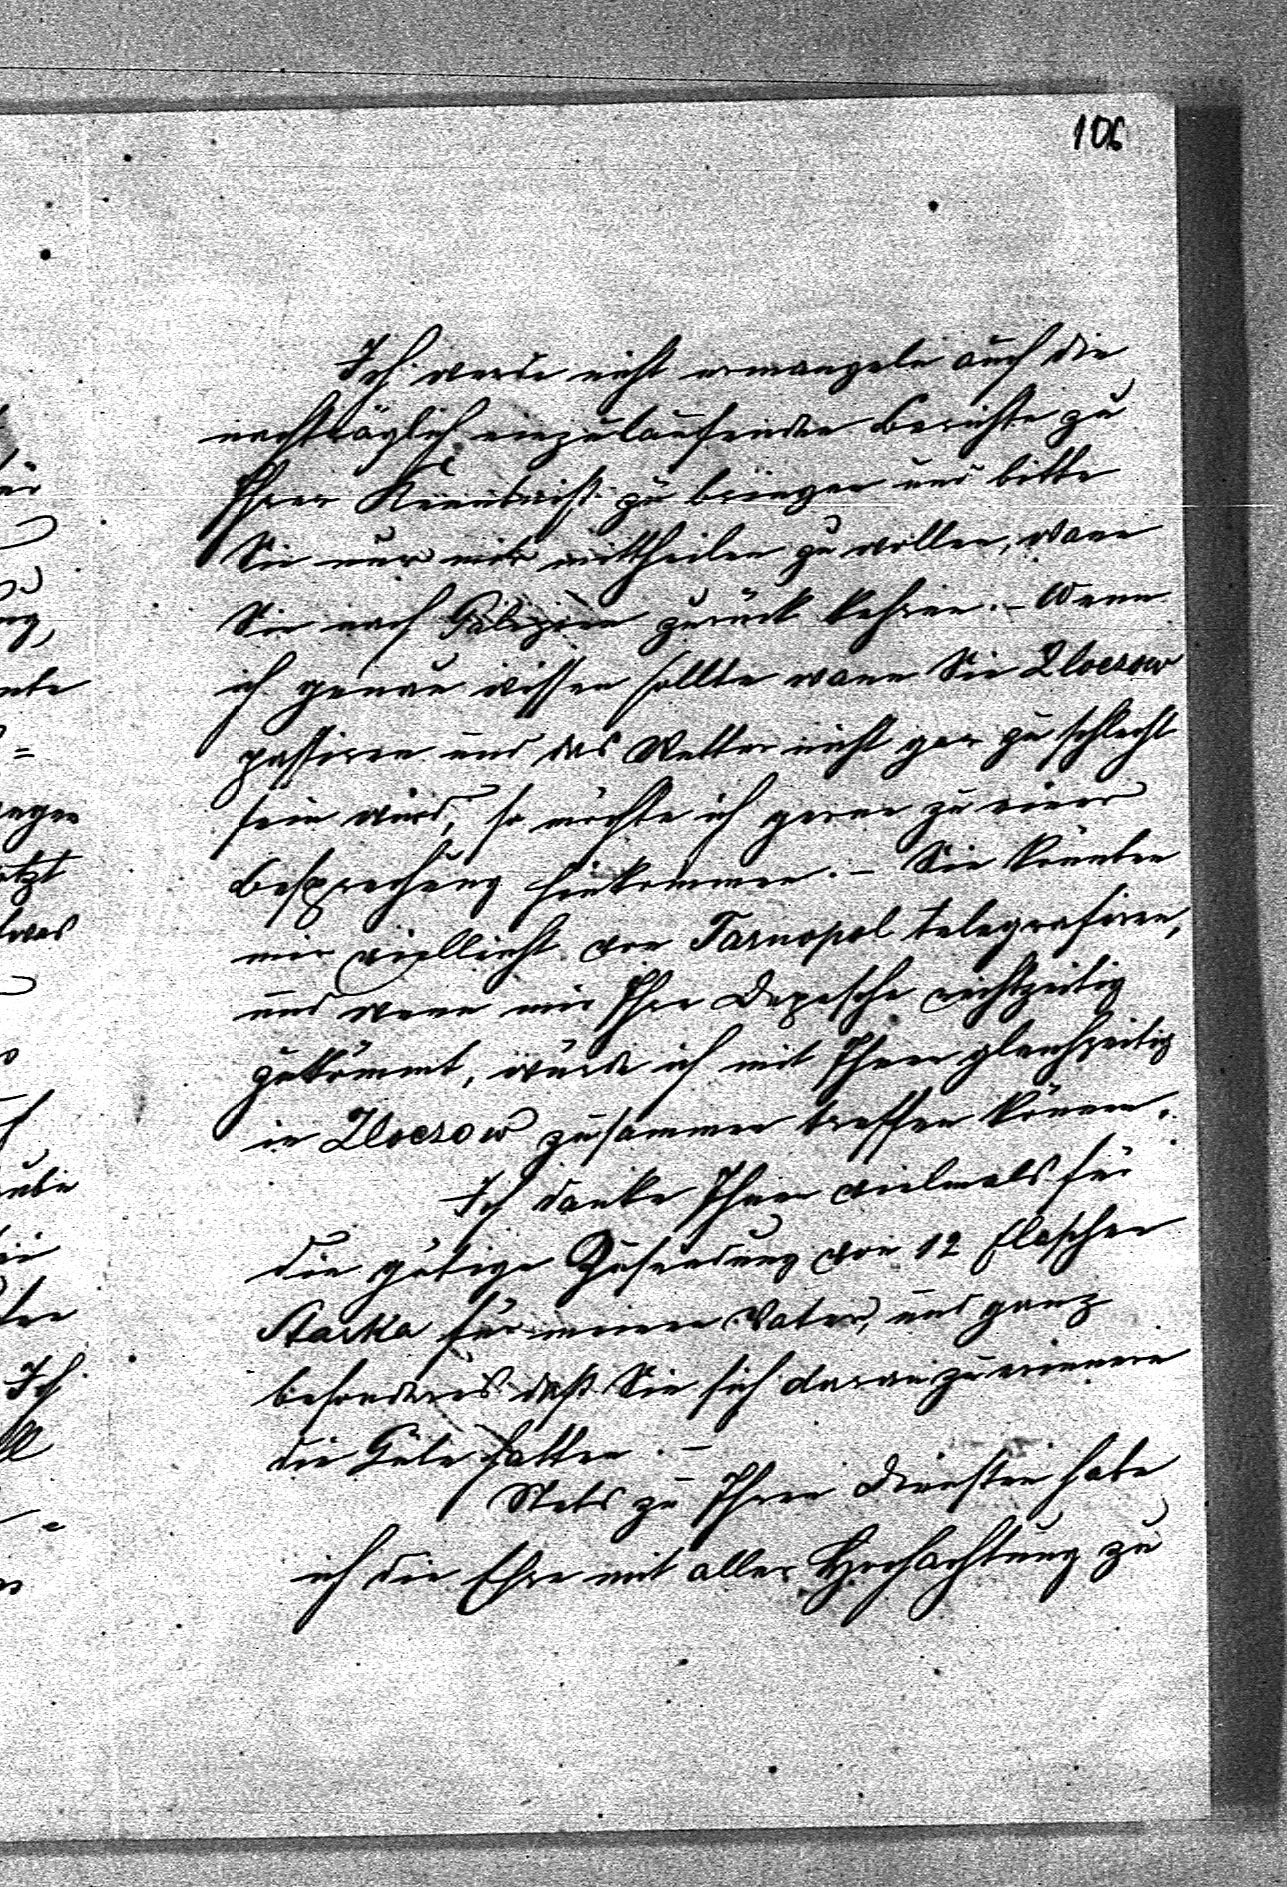 106
Ich werde nicht ermangeln auch die
nachträglich einzulaufenden Berichte zu
Ihrer Kenntniß zu bringen und bitte
Sie nur mir mittheilen zu wollen, wann
Sie nach Galizien zurück kehren. – Wenn
ich genau wissen sollte wann Sie Zloczow
passiren und das Wetter nicht gar zu schlecht
sein wird, so möchte ich gerne zu einer
Besprechung hinkommen. – Sie könnten
mir vielleicht von Tarnopol telegrafiren,
und wenn mir Ihre Depesche rechtzeitig
zukömmt, würde ich mit Ihnen gleichzeitig
in Zloczow zusammen treffen können.
Ich danke Ihnen vielmals für
die gütige Zusendung von 12 Flaschen
Starka für meinen Vater, und ganz
besonders daß Sie sich daran zu erinnern
die Güte hatten. –
Stets zu Ihren Diensten habe
ich die Ehre mit aller Hochachtung zu